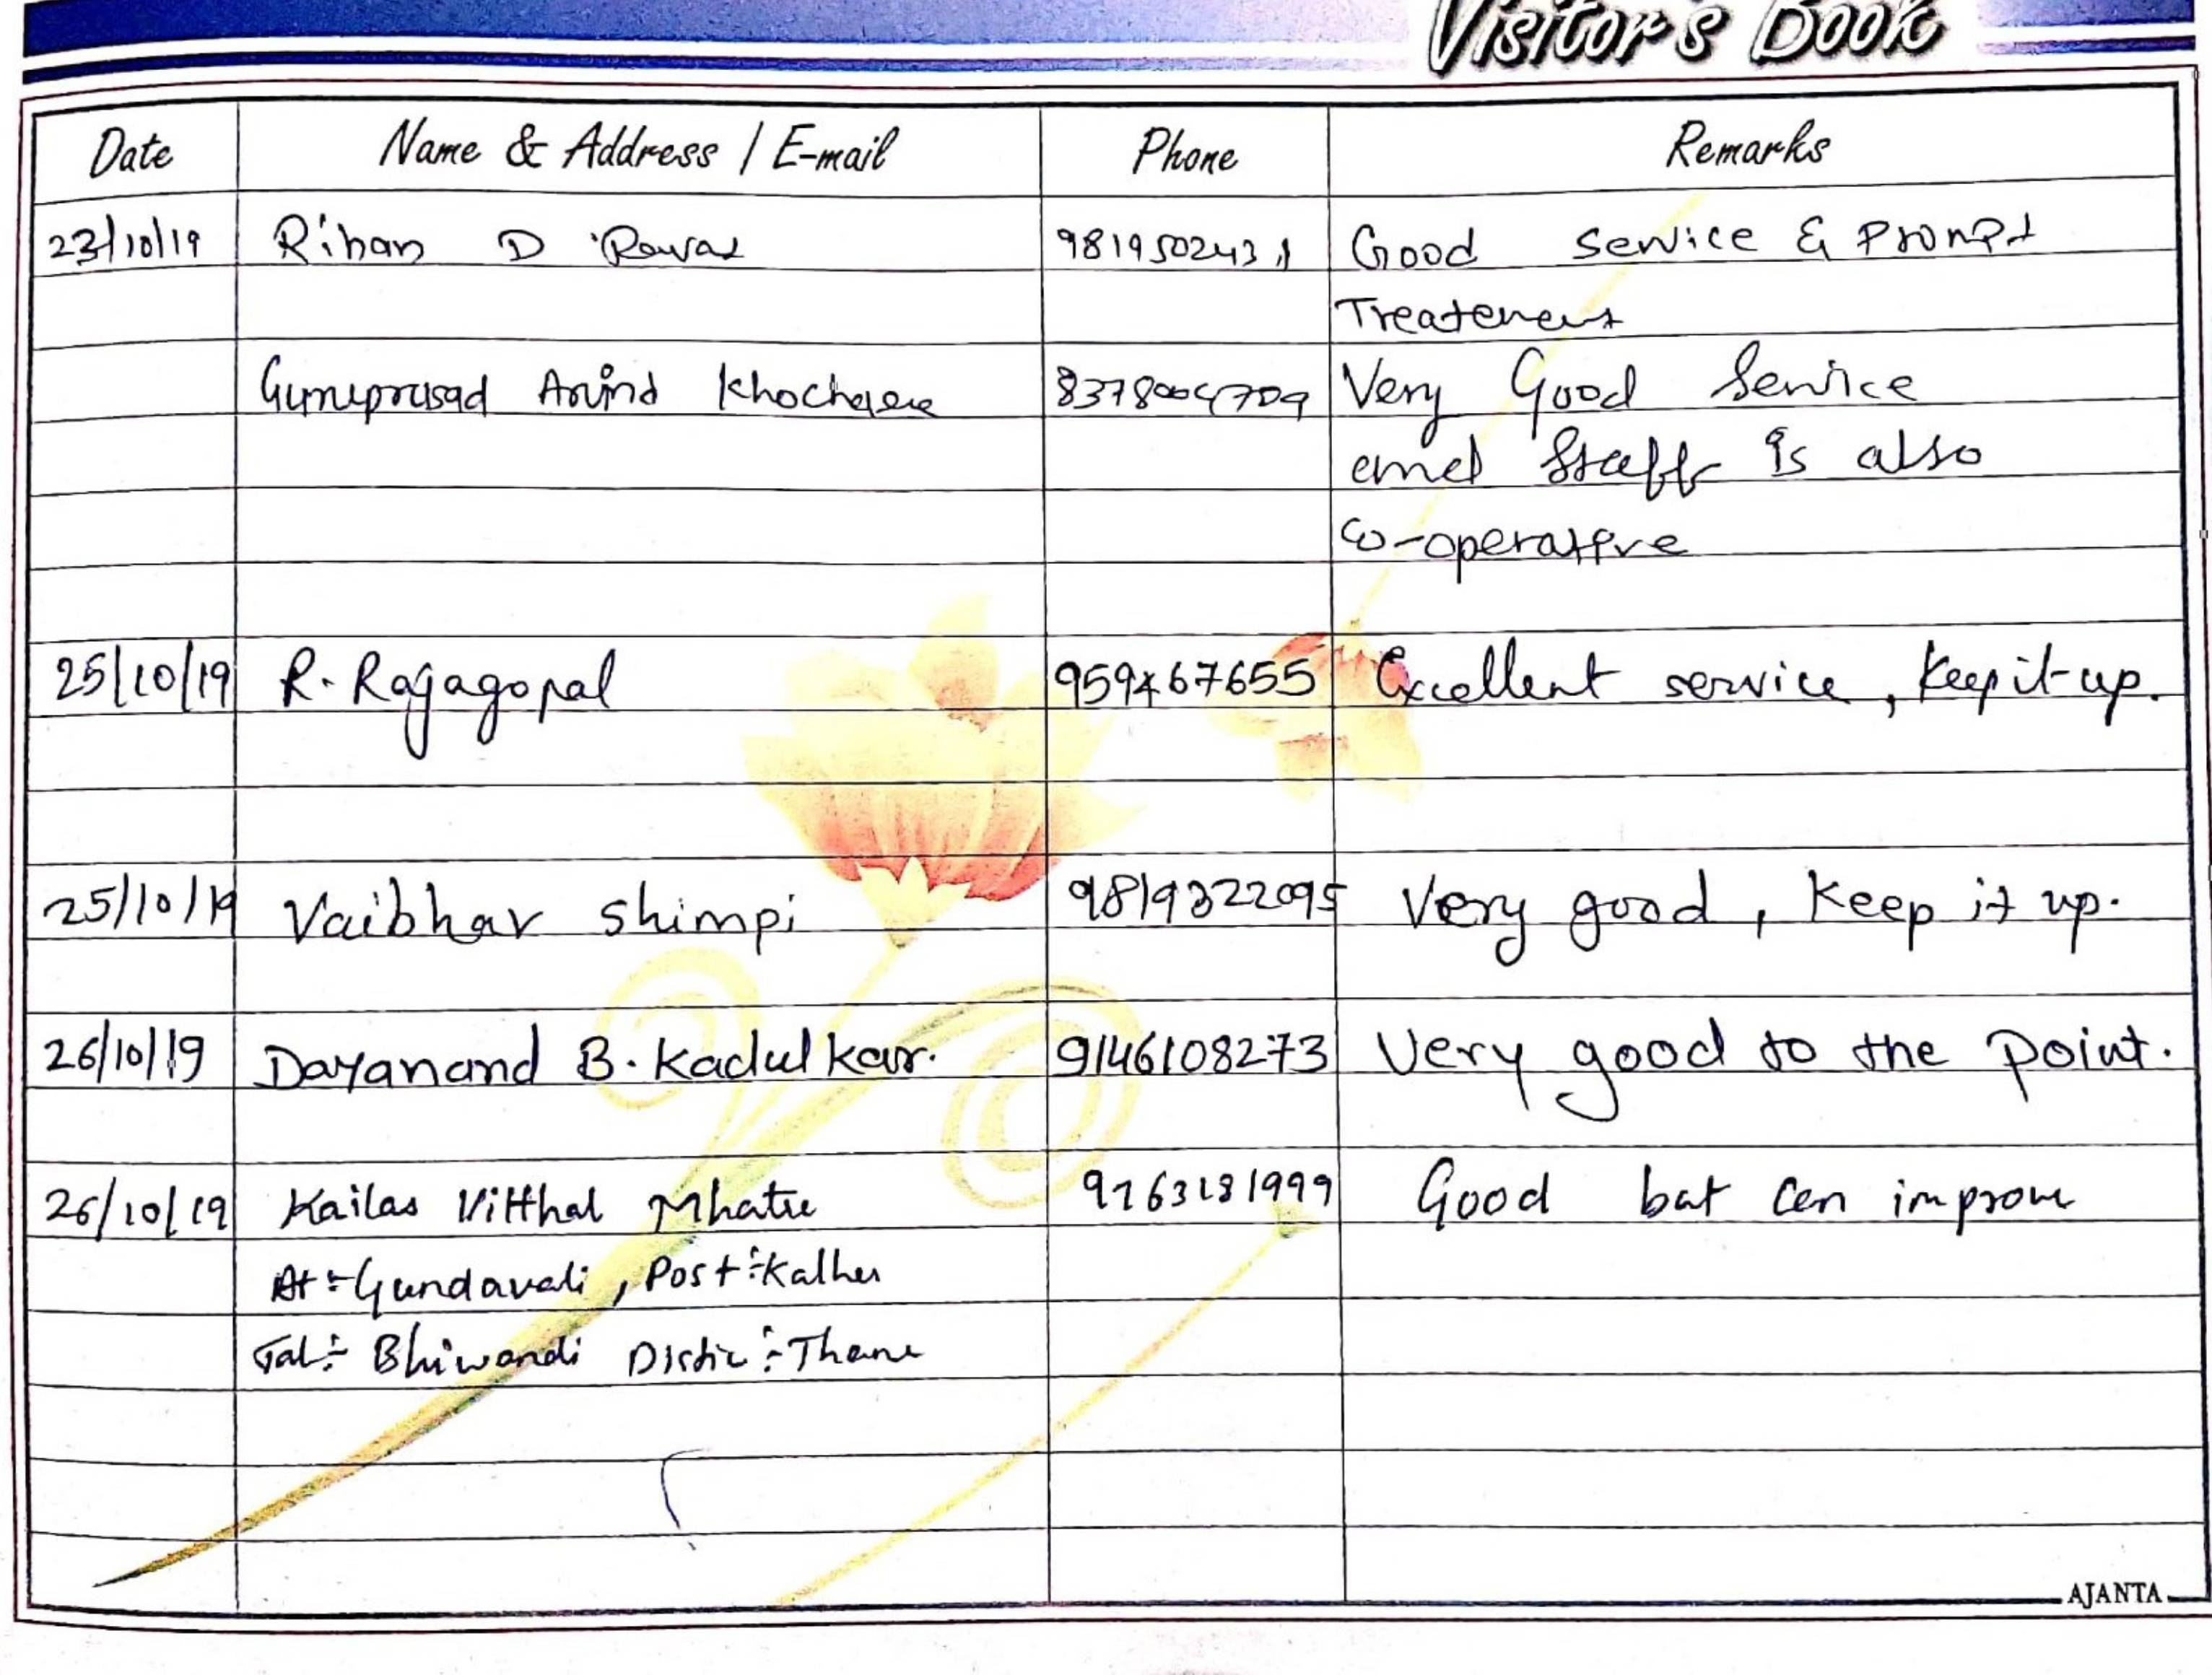 Visitor's Book
Date Name & Address / E-mail Phone Remarks
23/10/19 Rihan D Good Service & Prompt
Treatement
Guruprasad Arvind Very Good Service
and Staff is also
Co-operative
25/10/19 R. Rajagopal 959467655 Excellent service, Keep it up.
25/10/19 Vaibhav Shimpi 9819322095 Very good, Keep it up.
26/10/19 Dayanand B. Kadulkar. 9146108273 Very good to the point.
26/10/19 Kailas Vitthal Mhatre Good bat can improve
At :- Gundavali, Post :- Kalher
Tal :- Bhiwandi Distic :- Thane
AJANTA